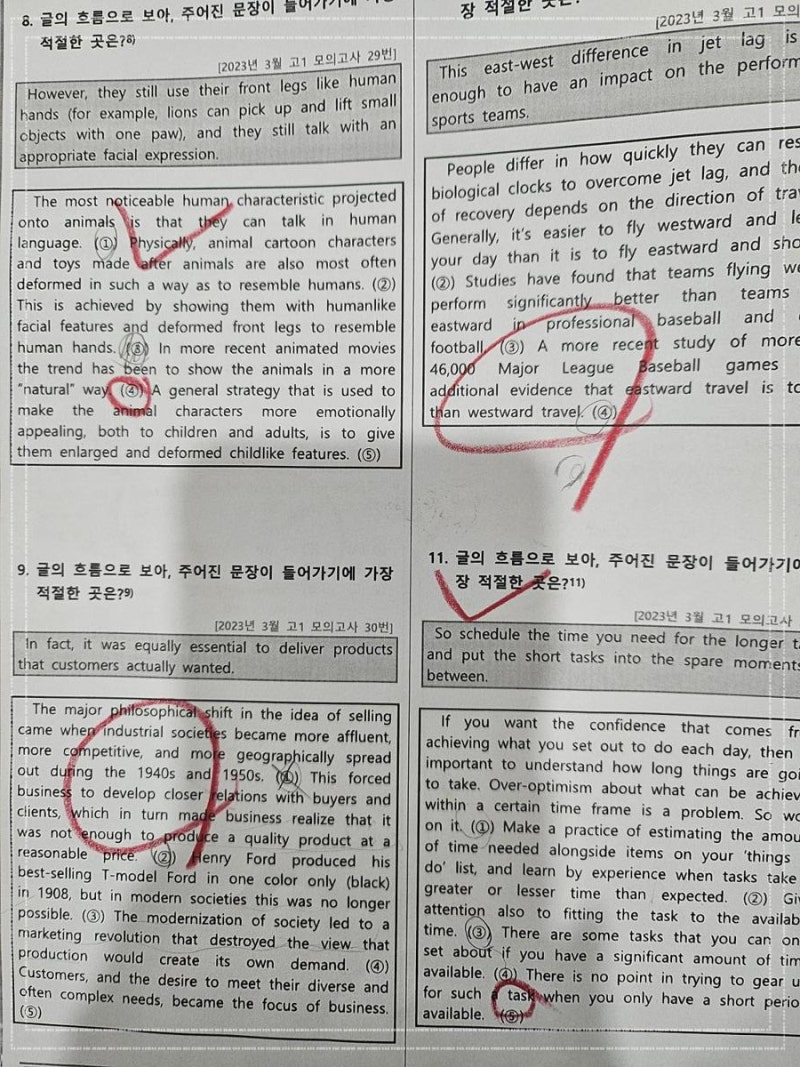 8. 글의 흐름으로 보아, 주어진 문장이 들어가기에 가장
적절한 곳은?8)
[2023년 3월 고1 모의고사 29번]
However, they still use their front legs like human
hands (for example, lions can pick up and lift small
objects with one paw), and they still talk with an
appropriate facial expression.
The most noticeable human characteristic projected
onto animals is that they can talk in human
language. (①) Physically, animal cartoon characters
and toys made after animals are also most often
deformed in such a way as to resemble humans. (②)
This is achieved by showing them with humanlike
facial features and deformed front legs to resemble
human hands. (③) In more recent animated movies
the trend has been to show the animals in a more
"natural" way. (④) A general strategy that is used to
make the animal characters more emotionally
appealing, both to children and adults, is to give
them enlarged and deformed childlike features. (⑤)
9. 글의 흐름으로 보아, 주어진 문장이 들어가기에 가장
적절한 곳은?9)
[2023년 3월 고1 모의고사 30번]
In fact, it was equally essential to deliver products
that customers actually wanted.
The major philosophical shift in the idea of selling
came when industrial societies became more affluent,
more competitive, and more geographically spread
out during the 1940s and 1950s. (①) This forced
business to develop closer relations with buyers and
clients, which in turn made business realize that it
was not enough to produce a quality product at a
reasonable price. (②) Henry Ford produced his
best-selling T-model Ford in one color only (black)
in 1908, but in modern societies this was no longer
possible. (③) The modernization of society led to a
marketing revolution that destroyed the view that
production would create its own demand. (④)
Customers, and the desire to meet their diverse and
often complex needs, became the focus of business.
(⑤)
장 적절한 곳은?
[2023년 3월 고1 모의
This east-west difference in jet lag is
enough to have an impact on the perform
sports teams.
People differ in how quickly they can res
biological clocks to overcome jet lag, and the
of recovery depends on the direction of tra
Generally, it's easier to fly westward and le
your day than it is to fly eastward and sho
(②) Studies have found that teams flying we
perform significantly better than teams
eastward in professional baseball and
football. (③) A more recent study of more
46,000 Major League Baseball games
additional evidence that eastward travel is to
than westward travel. (④)
11. 글의 흐름으로 보아, 주어진 문장이 들어가기에
장 적절한 곳은?11)
[2023년 3월 고1 모의고사
So schedule the time you need for the longer ta
and put the short tasks into the spare moments
between.
If you want the confidence that comes fr
achieving what you set out to do each day, then
important to understand how long things are goi
to take. Over-optimism about what can be achiev
within a certain time frame is a problem. So wo
on it. (①) Make a practice of estimating the amou
of time needed alongside items on your 'things
do' list, and learn by experience when tasks take
greater or lesser time than expected. (②) Giv
attention also to fitting the task to the availab
time. (③) There are some tasks that you can on
set about if you have a significant amount of tim
available. (④) There is no point in trying to gear u
for such a task when you only have a short perio
available. (⑤)